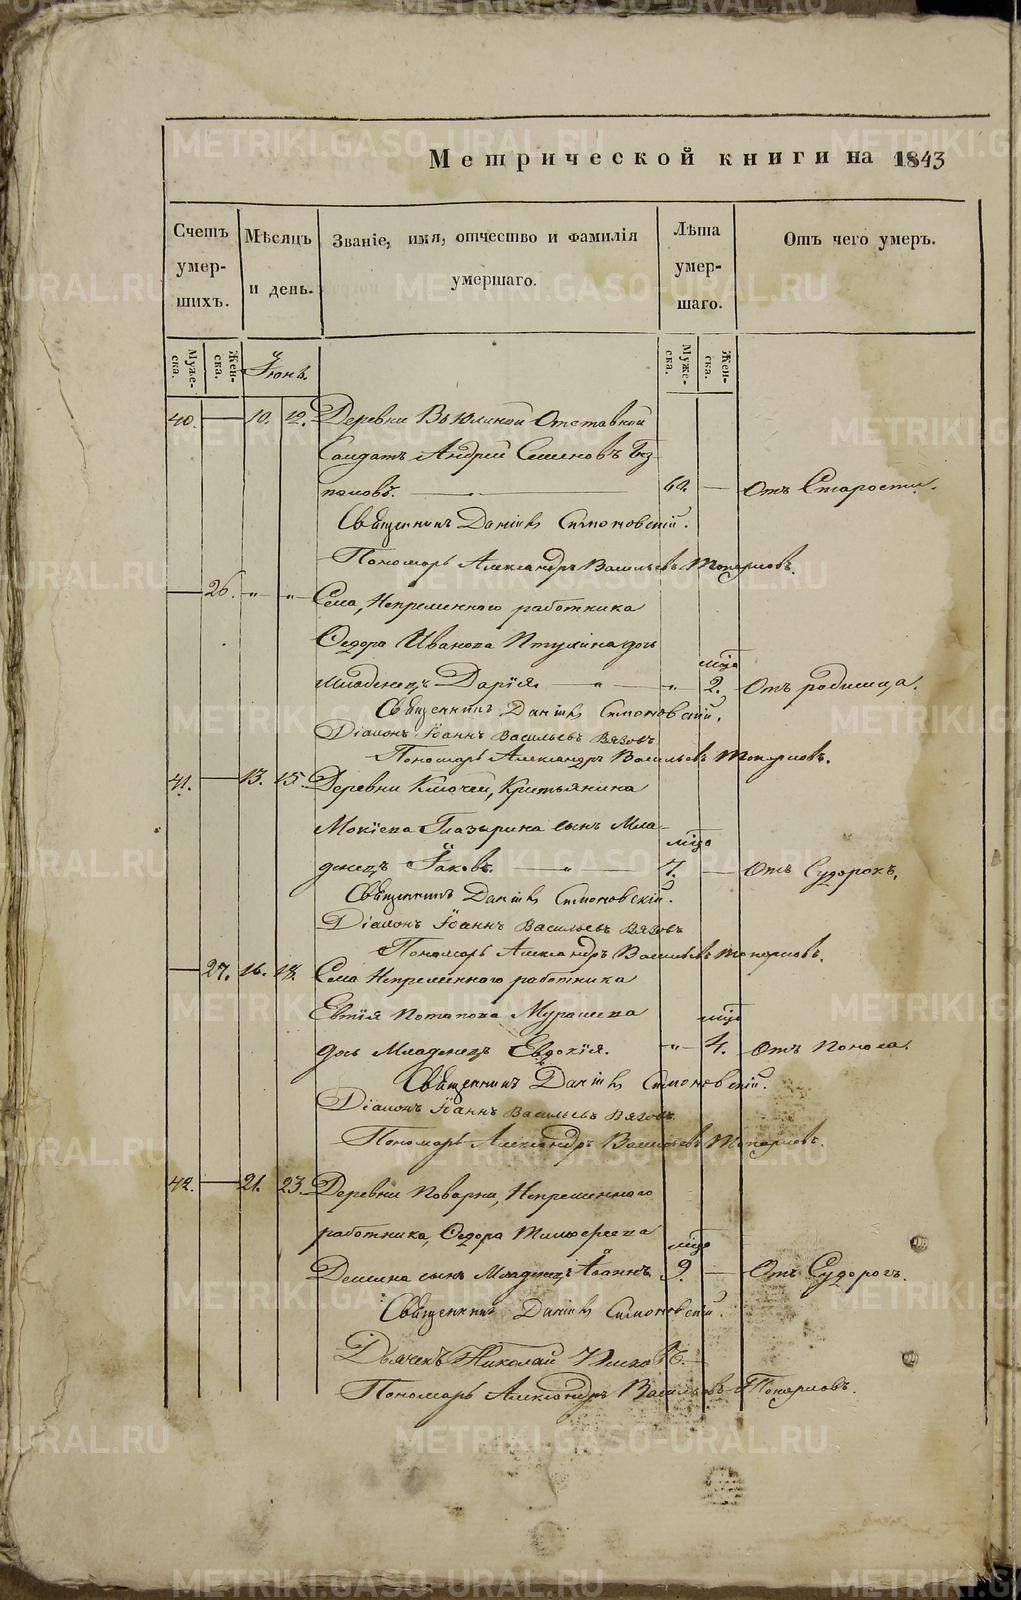 Метрической книги на 1843
Счетъ умершихъ.
Мѣсяцъ и день.
Званіе, имя, отчество и фамилія умершаго.
Лѣта умершаго.
Отъ чего умеръ.
Мужеска.
Женска.
Іюнь.
Мужеска.
Женска.
40. 10. 12. Деревни Отставной
Солдатъ Андрей Семеновъ
64. Отъ Старости.
Священникъ Даніилъ Симоновскій.
Пономарь Александръ Васильевъ Топорковъ.
26. " " Села, Непременного работника
Федора Иванова Птухина дочь
мца
младенецъ Дарія. " " 2. Отъ родимца.
Священникъ Даніилъ Симоновскій.
Діаконъ Іоаннъ Васильевъ Вязовъ
Пономарь Александръ Васильевъ Топорковъ.
41. 13. 15. Деревни Ключей, Крестьянина
Мокіева Глазырина сынъ Мла-
мцо
денецъ Іаковъ. " 7. Отъ Судорокъ.
Священникъ Даніилъ Симоновскій.
Діаконъ Іоаннъ Васильевъ Вязовъ
Пономарь Александръ Васильевъ Топорковъ.
27. 16. 18. Села Непременного работника
Евтія Потапова Мурашева
мца
дочь Младенецъ Евдокія. " 4. Отъ Поноса.
Священникъ Даніилъ Симоновскій.
Діаконъ Іоаннъ Васильевъ Вязовъ.
Пономарь Александръ Васильевъ Топорковъ.
42. 21. 23. Деревни Поварни, Непременного
работника, Федора Тимофеева
мцо
Демина сынъ Младенецъ Іоаннъ. 9. Отъ Судорогъ.
Священникъ Даніилъ Симоновскій.
Дьячекъ Николай
Пономарь Александръ Васильевъ Топорковъ.
METRIKI.GASO-URAL.RU